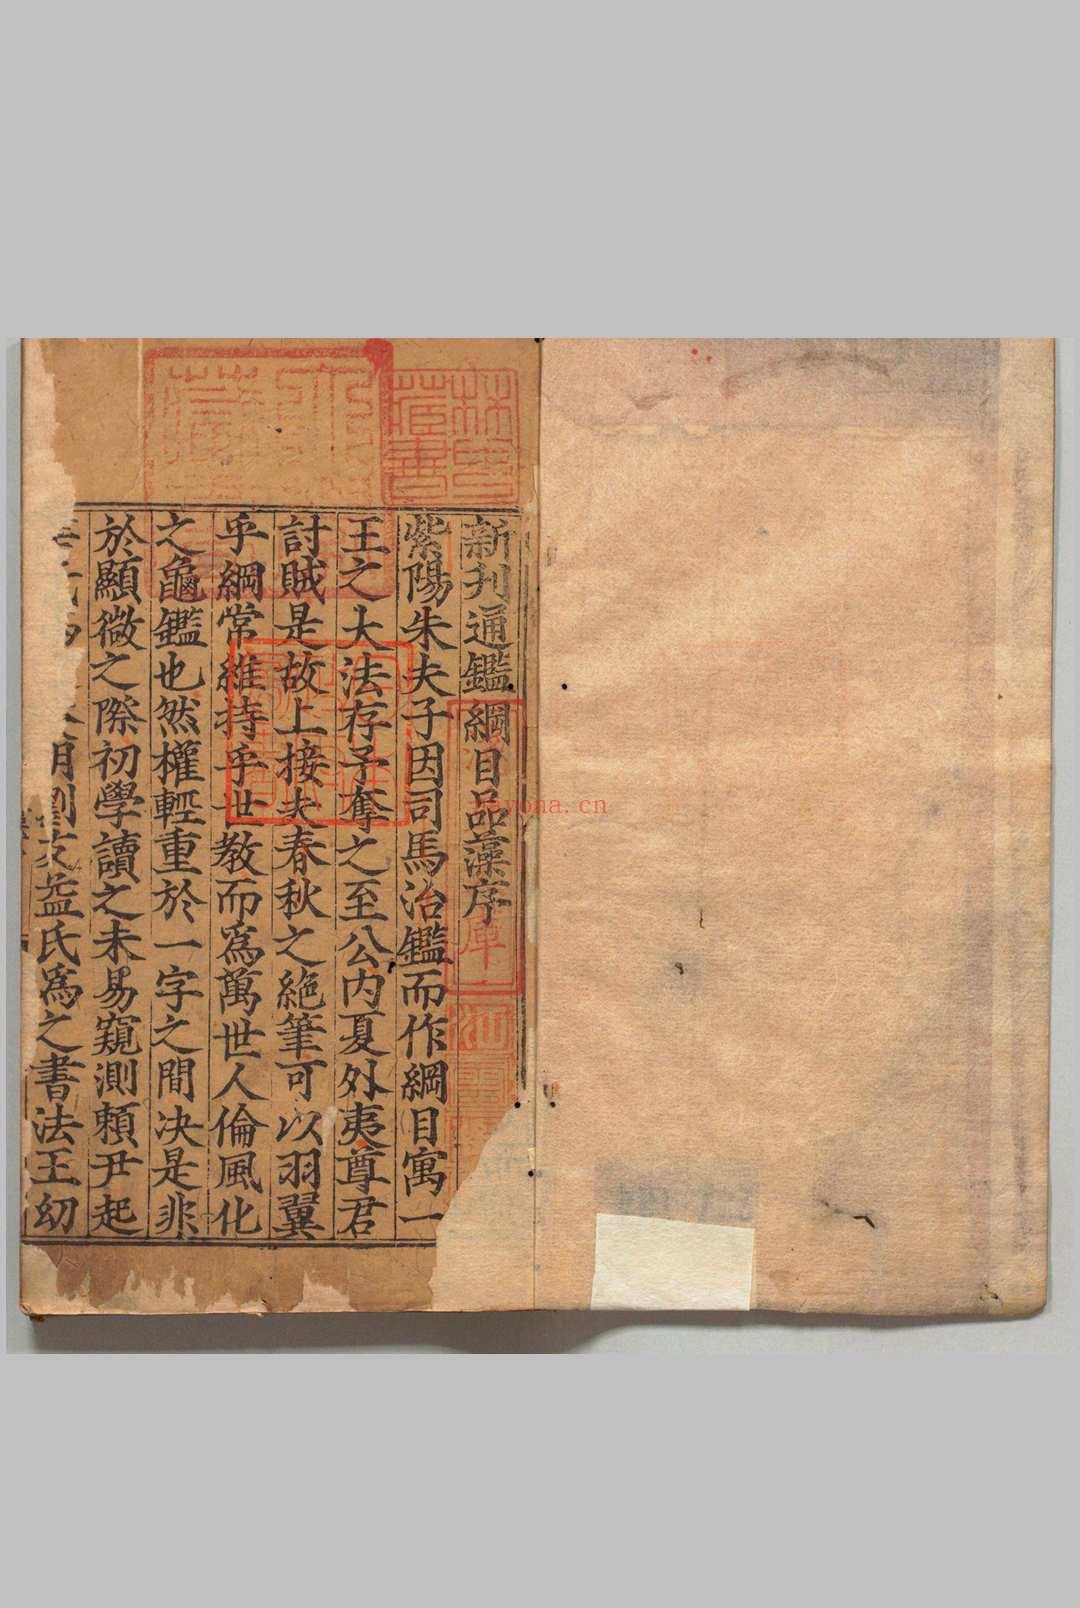 新刊通鑑綱目品藻序
紫陽朱夫子因司馬治鑑而作綱目寓一
王之大法存予奪之至公内夏外夷尊君
討賊是故上接夫春秋之絶筆可以羽翼
乎綱常維持乎世教而為萬世人倫風化
之龜鑑也然權輕重於一字之間决是非
於顯微之際初學讀之未易窺測頼尹起
劉友益氏為之書法王幼
林氏藏書
nayona.cn